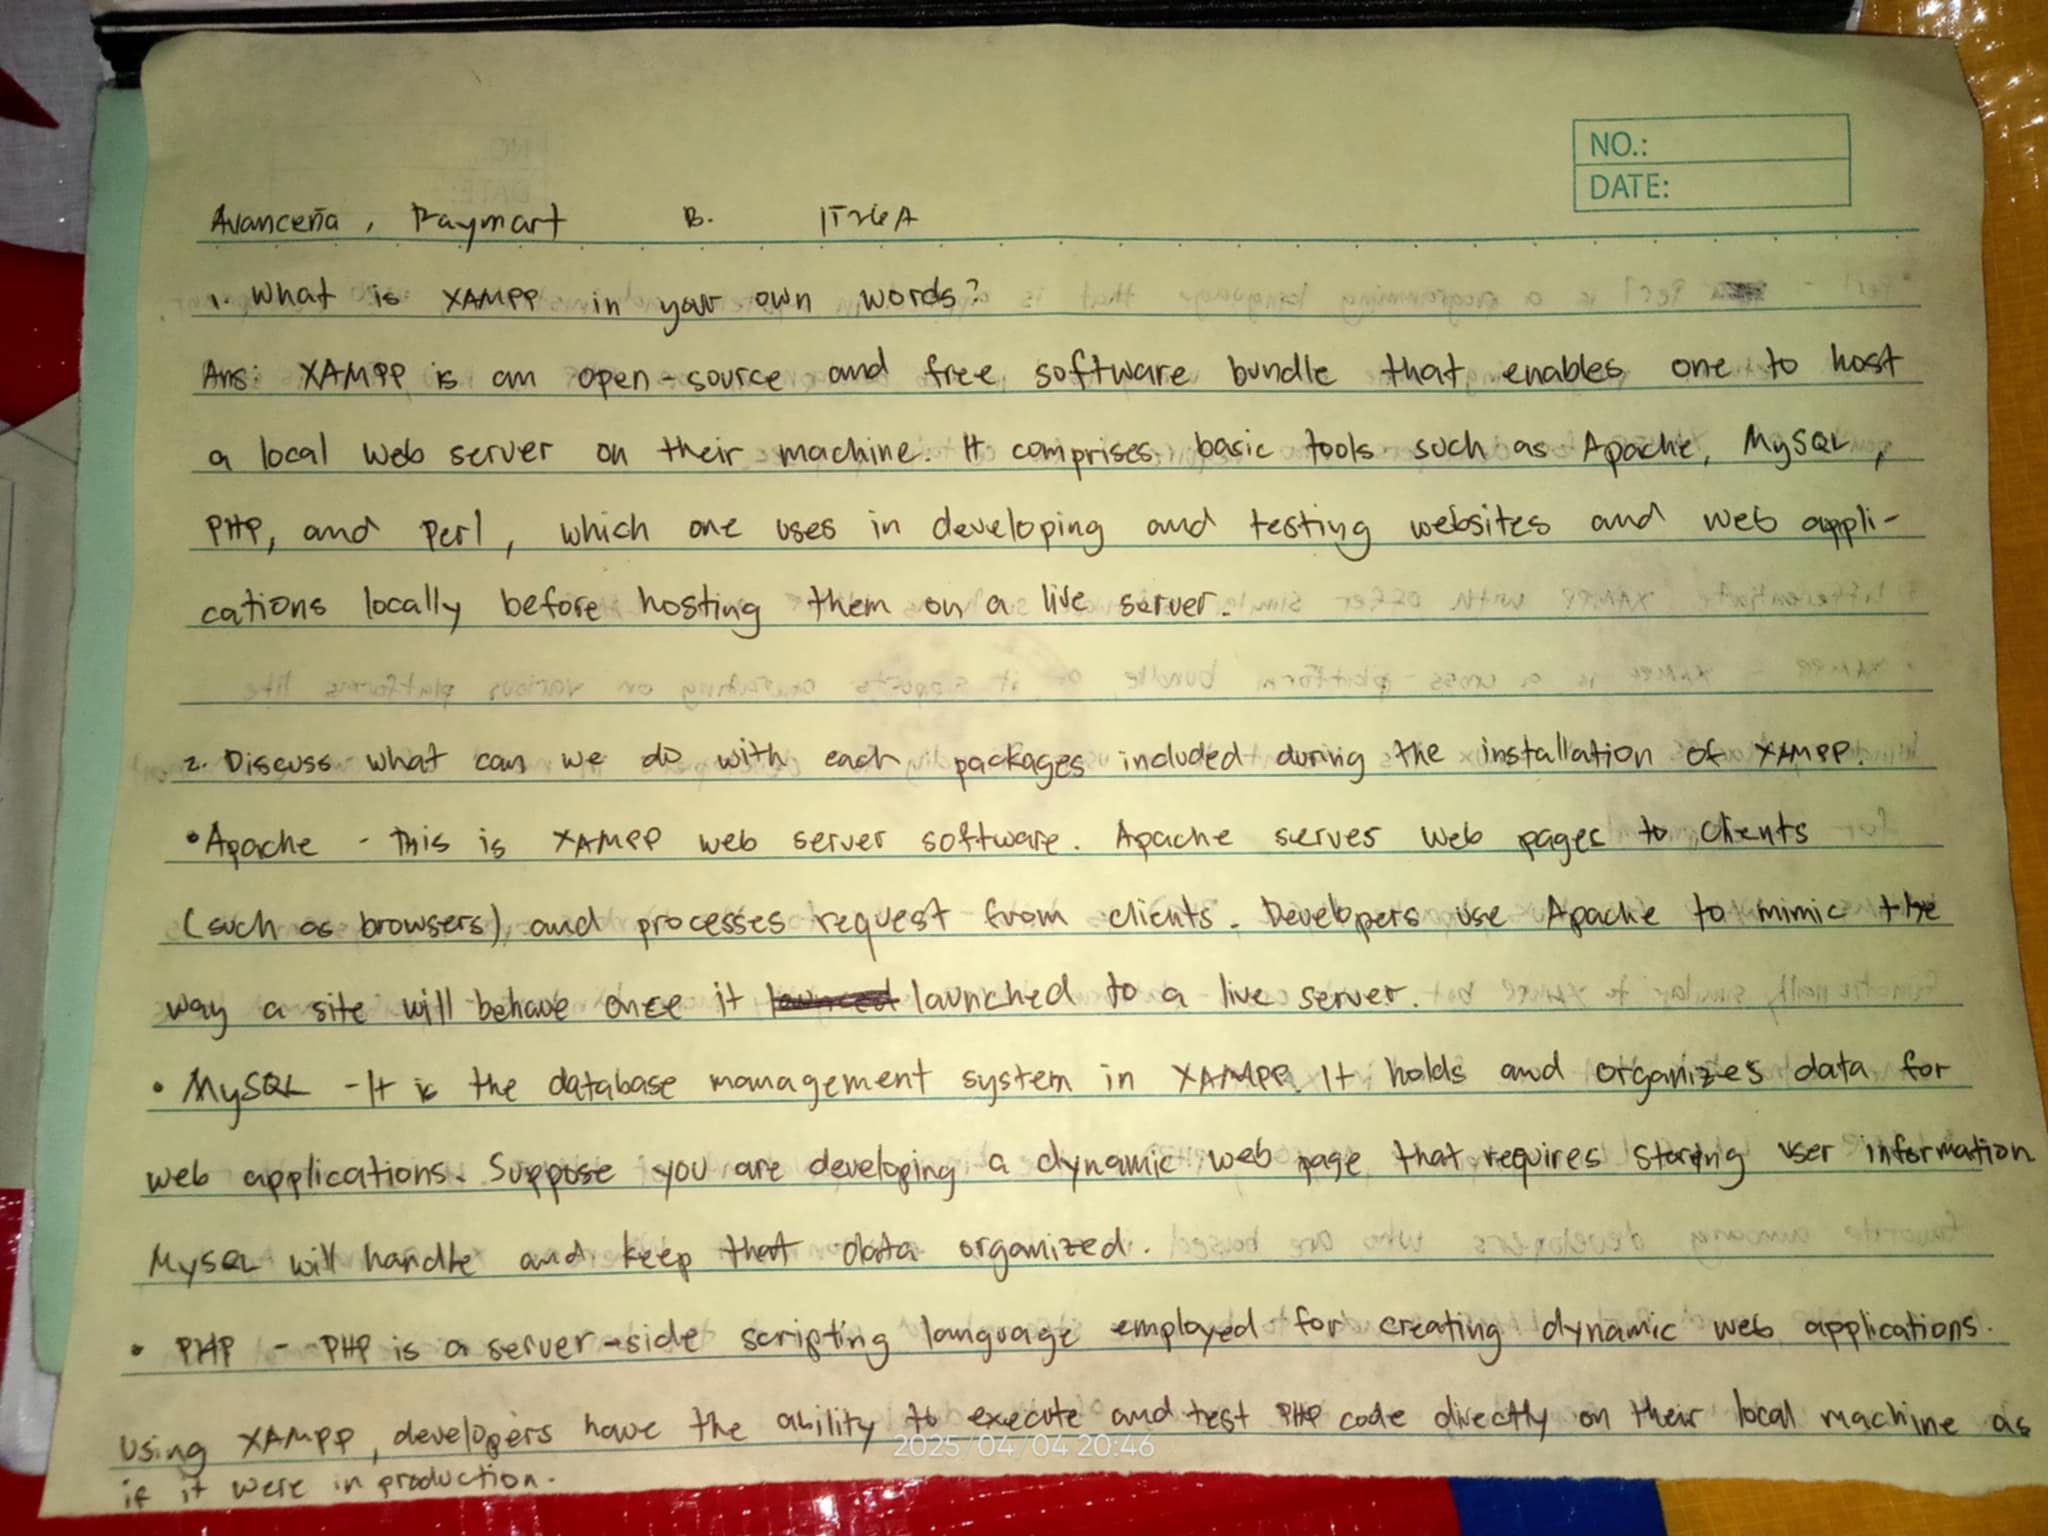 NO.:
DATE:
Avanceña, Raymart B. IT26A
1. What is XAMPP in your own words?
Ans: XAMPP is an open-source and free software bundle that enables one to host
a local web server on their machine. It comprises basic tools such as Apache, MySQL,
PHP, and Perl, which one uses in developing and testing websites and web appli-
cations locally before hosting them on a live server.
2. Discuss what can we do with each packages included during the installation of XAMPP.
• Apache - This is XAMPP web server software. Apache serves web pages to clients
(such as browsers) and processes request from clients. Developers use Apache to mimic the
way a site will behave once it launched to a live server.
• MySQL - It is the database management system in XAMPP. It holds and organizes data for
web applications. Suppose you are developing a dynamic web page that requires storing user information
MySQL will handle and keep that data organized.
• PHP - PHP is a server-side scripting language employed for creating dynamic web applications.
Using XAMPP, developers have the ability to execute and test PHP code directly on their local machine as
if it were in production.
2025/04/04 20:46